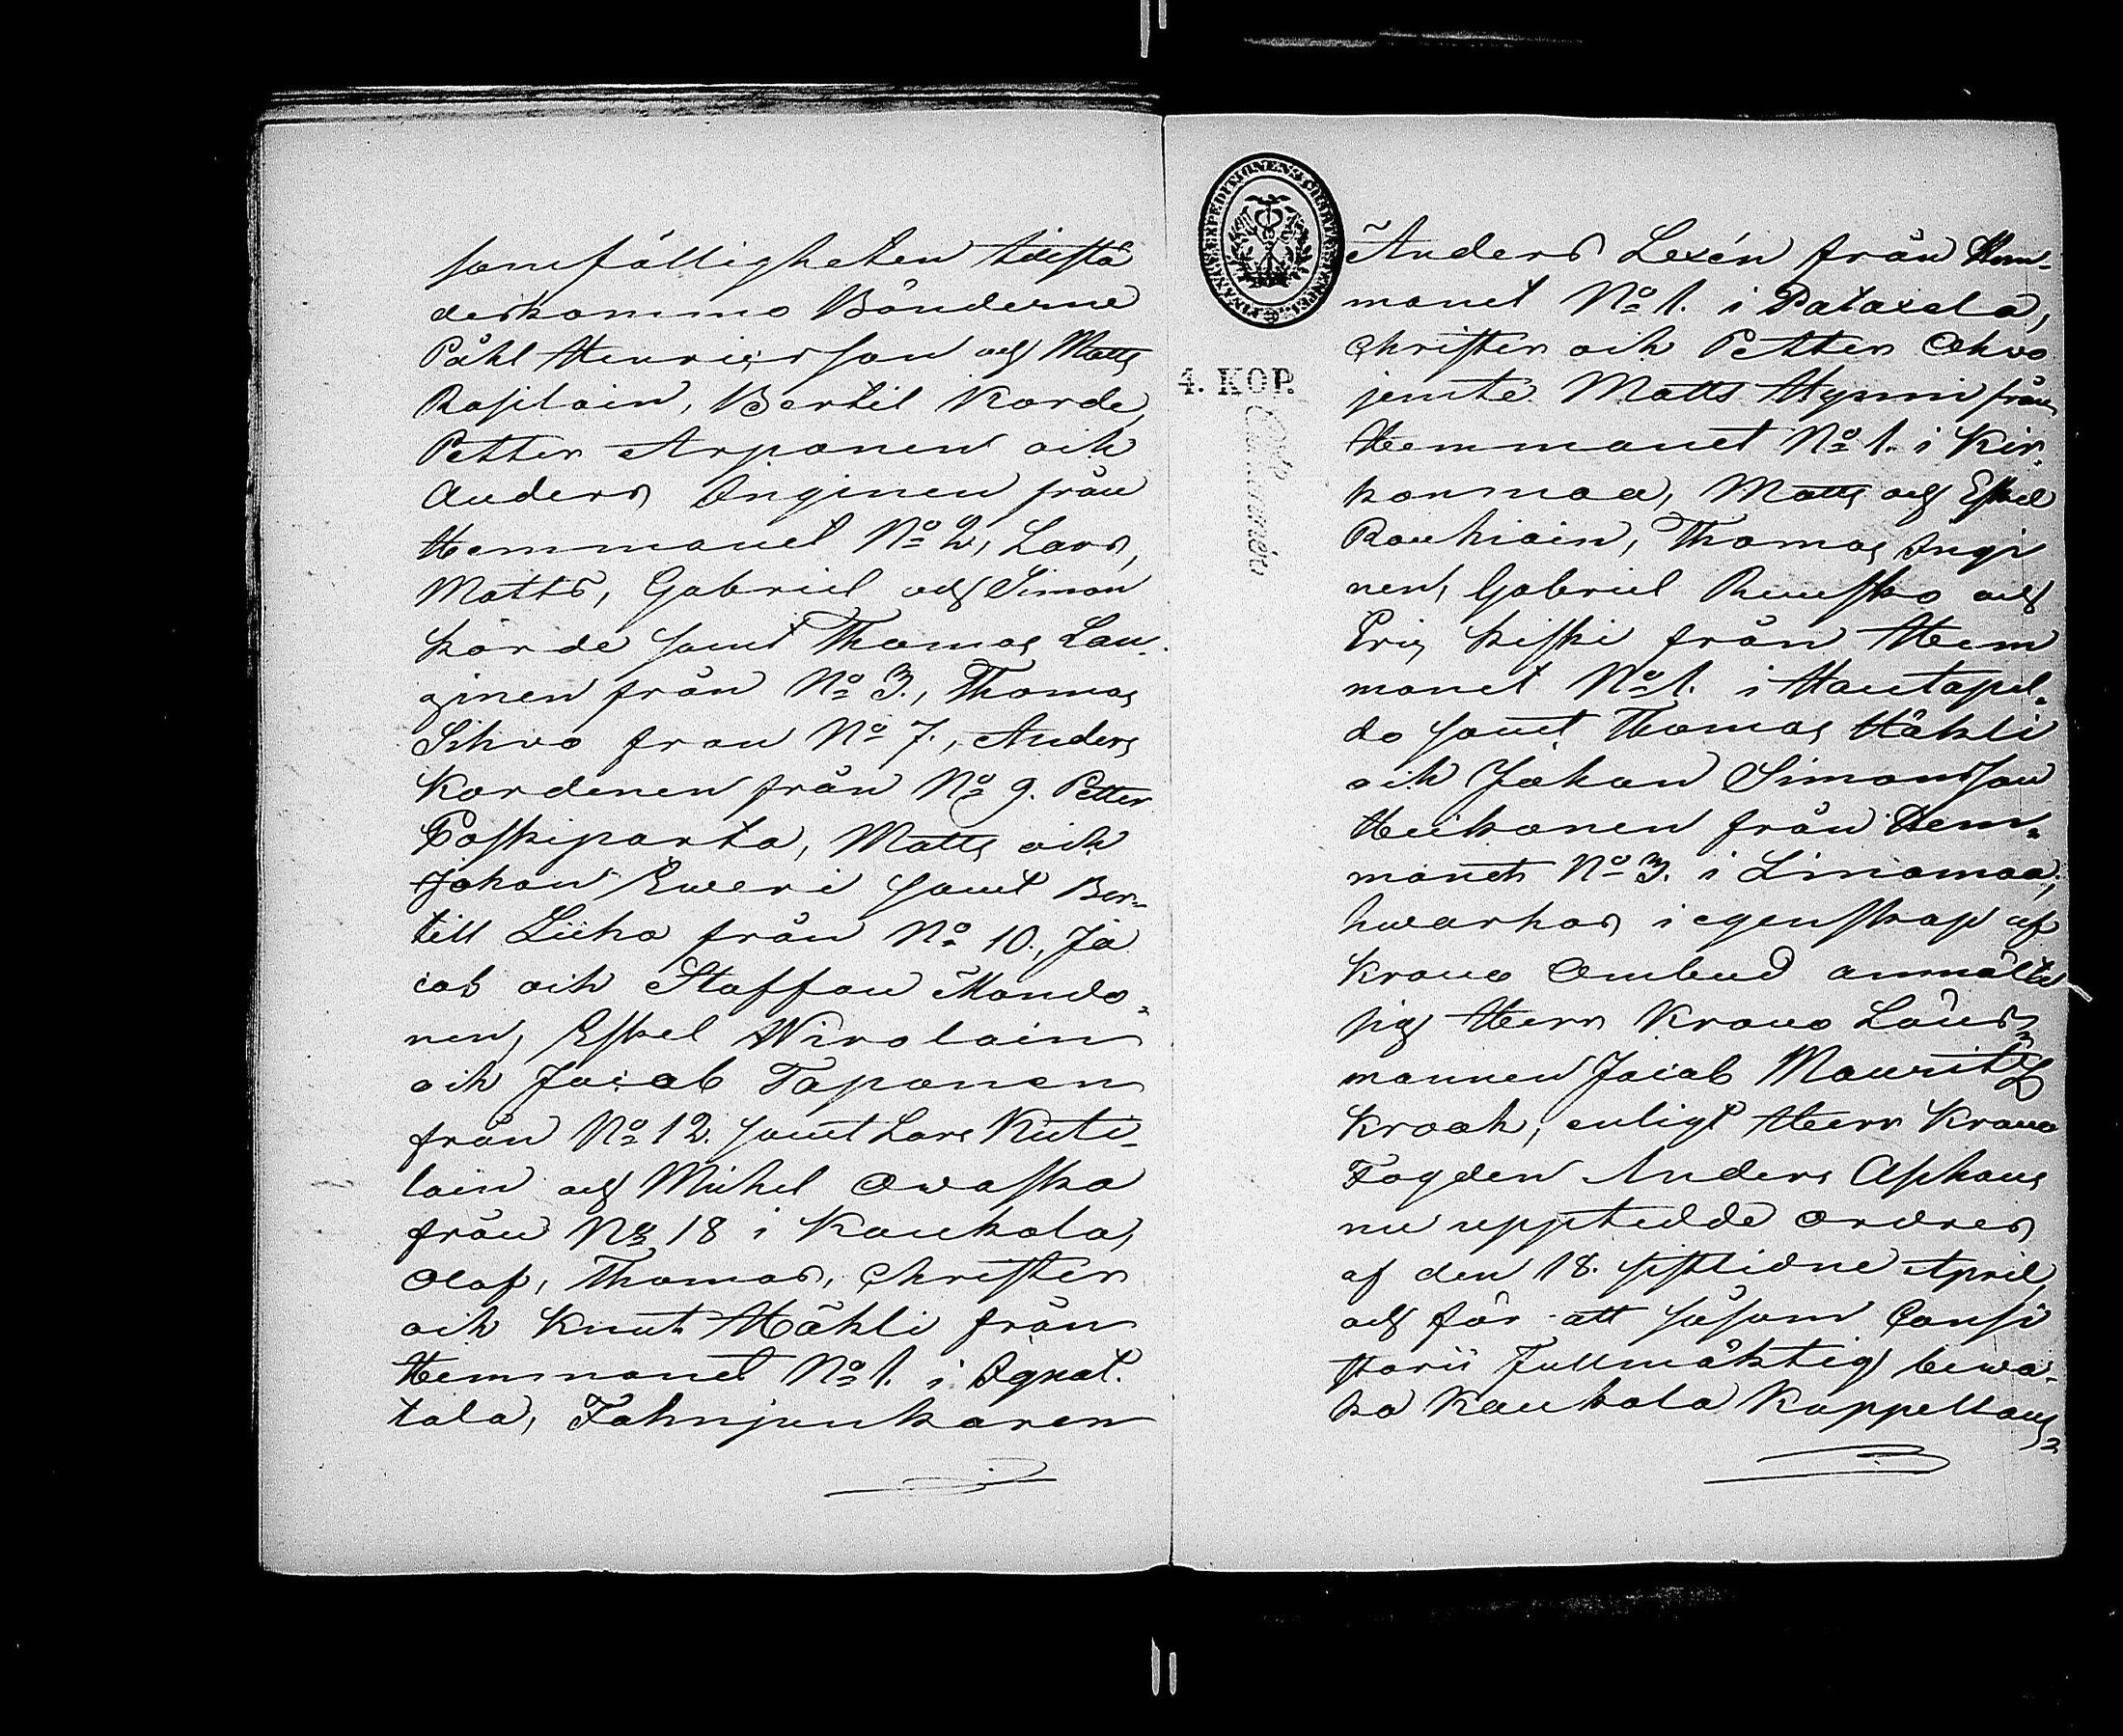 samfälligheten tvista
deskommo Bönderne
Påhl Henricsson och Matts
Rasilain, Bertil Korde,
Petter Arponen och
Anders Inginen från
Hemmanet No 2, Lars,
Matts, Gabriel och Simon
Korde samt Thomas Lau-
ginen från No 3., Thomas
Sihvo fran No 7., Anders
Kordenen från No 9. Petter
Poskiparta, Matts och
Johan Eweri samt Ber-
till Liiha från No 10., Ja
cob och Staffan Mando-
nen, Eskel Wirolain
och Jacob Taponen
från No 12. samt Lars Kuti-
lain och Michel Owaska
från No 18 i Kaukola,
Olof, Thomas, Christer
och Knut Hähli från
Hemmanet No 1. i Ognat.
tala, Fahnjunkaren
FINANS-EXPEDITIONENS CHARTÆ STEMPEL
4. KOP.
Anders Lexén från Hem-
manet No 1. i Pataxala,
Christer och Petter Ohvo
jemte Matts Hynni från
Hemmanet No 1. i Kir-
konmaa, Matts och Eskel
Rauhiain, Thomas Ingi
nen, Gabriel Ruusko och
Eric Kiski från Hem
manet No 1. i Hautapel-
do samt Thomas Häkli
och Johan Simonsson
Heikonen från Hem-
manet No 3. i Linamaa;
hwarhos i egenskap af
Krono Ombud anmälte
sig Herr Krono Läns-
mannen Jacob Mauritz
Kraok, enligt Herr Krono
Fogden Anders Asphans
nu upptedde ordres
af den 18. sistlidne April,
och för att såsom Consi
storii Fullmäktig bewa-
ka Kaukola Kappellans-